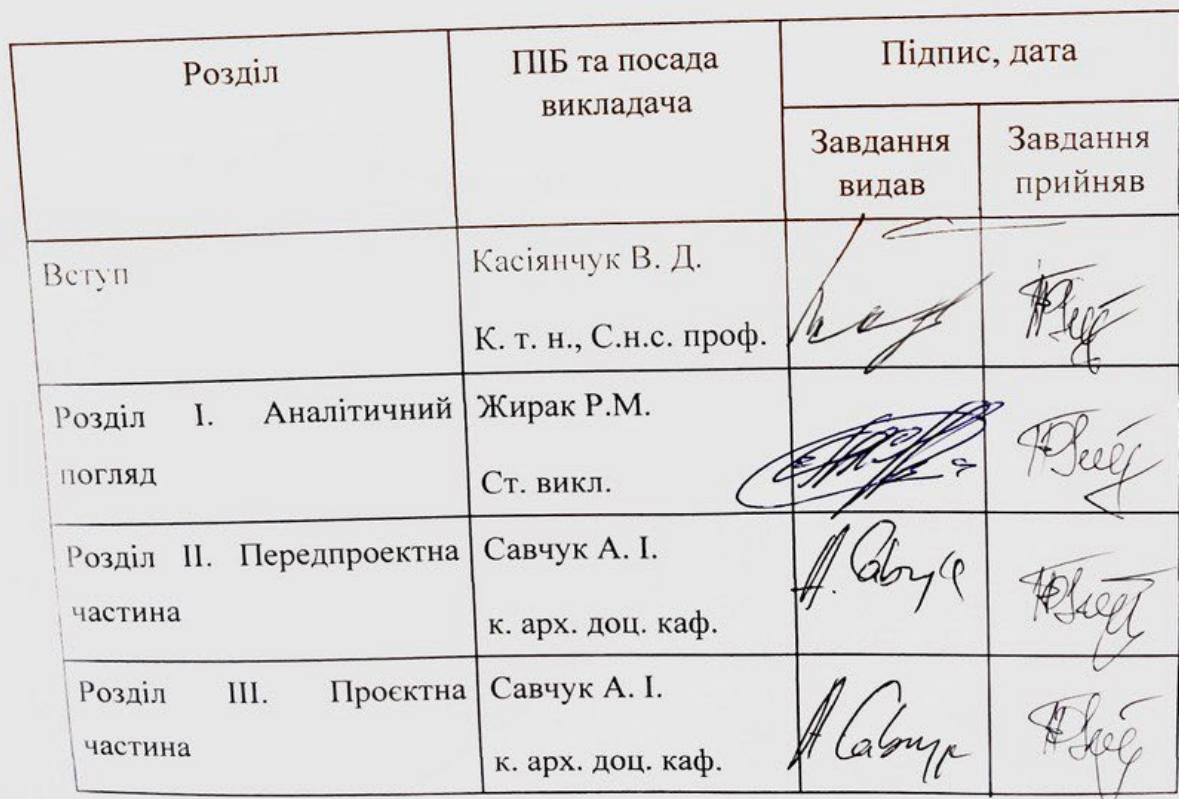 Розділ
ПІБ та посада
викладача
Підпис, дата
Завдання
видав
Завдання
прийняв
Вступ
Касіянчук В. Д.
К. т. н., С.н.с. проф.
Розділ І. Аналітичний
погляд
Жирак Р.М.
Ст. викл.
Розділ ІІ. Передпроектна
частина
Савчук А. І.
к. арх. доц. каф.
А. Савчук
Розділ ІІІ. Проєктна
частина
Савчук А. І.
к. арх. доц. каф.
А Савчук